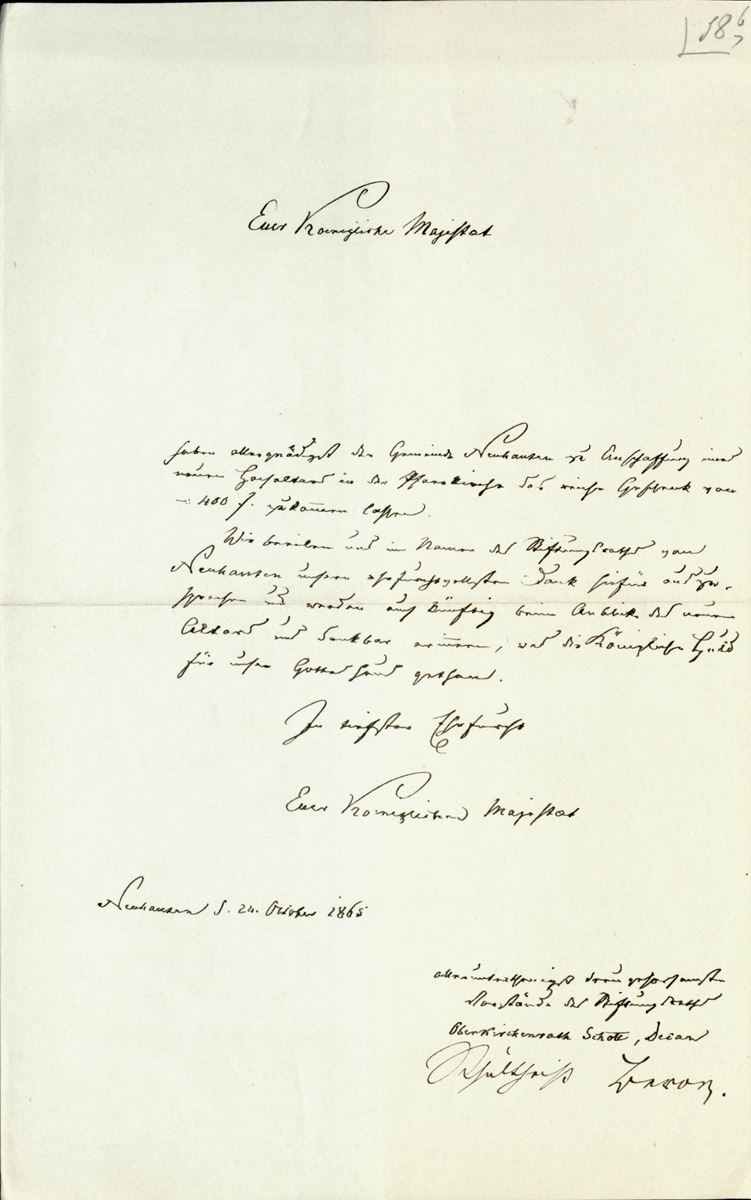 Euer Koenigliche Majestaet
haben allergnädigst der Gemeinde Neuhausen zu Anschaffung eines
neuen Hochaltars in der Pfarrkirche das reiche Geschenk von
400 f. zukom̄en lassen.
Wir beeilen uns im Namen des Stiftungsraths von
Neuhausen unsern ehrfurchtsvollsten Dank hiefür auszu-
sprechen und werden auch künftig beim Anblik des neuen
Altars uns dankbar erin̄ern, was die Königliche Huld
für unser Gotteshaus gethan.
In tiefster Ehrfurcht
Euer Koeniglichen Majestaet
Neuhausen d. 24. October 1865
allerunterthaenigst treu gehorsamste
Vorstände des Stiftungsraths
Oberkirchenrath Schott, Decan
Schultheiß